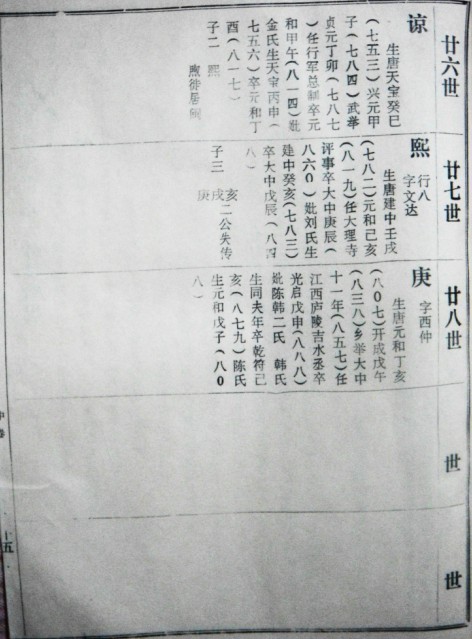 廿六世
谅
生唐天宝癸巳
(七五三)兴元甲
子(七八四)武举
贞元丁卯(七八七
)任行军总制卒元
和甲午(八一四)妣
金氏生天宝丙申(
七五六)卒元和丁
酉(八一七)
子二 熙
廿七世
熙
行八
字文达
生唐建中壬戌
(七八二)元和己亥
(八一九)任大理寺
评事卒大中庚辰(
八六0)妣刘氏生
建中癸亥(七八三)
卒大中戊辰(八四
八)
子三
亥
戌
二公失传
庚
廿八世
庚
字西仲
生唐元和丁亥
(八0七)开成戊午
(八三八)乡举大中
十一年(八五七)任
江西庐陵吉水丞卒
光启戊申(八八八)
妣陈韩二氏 韩氏
生同夫年卒乾符己
亥(八七九)陈氏
生元和戊子(八0
八)
世
世
十五